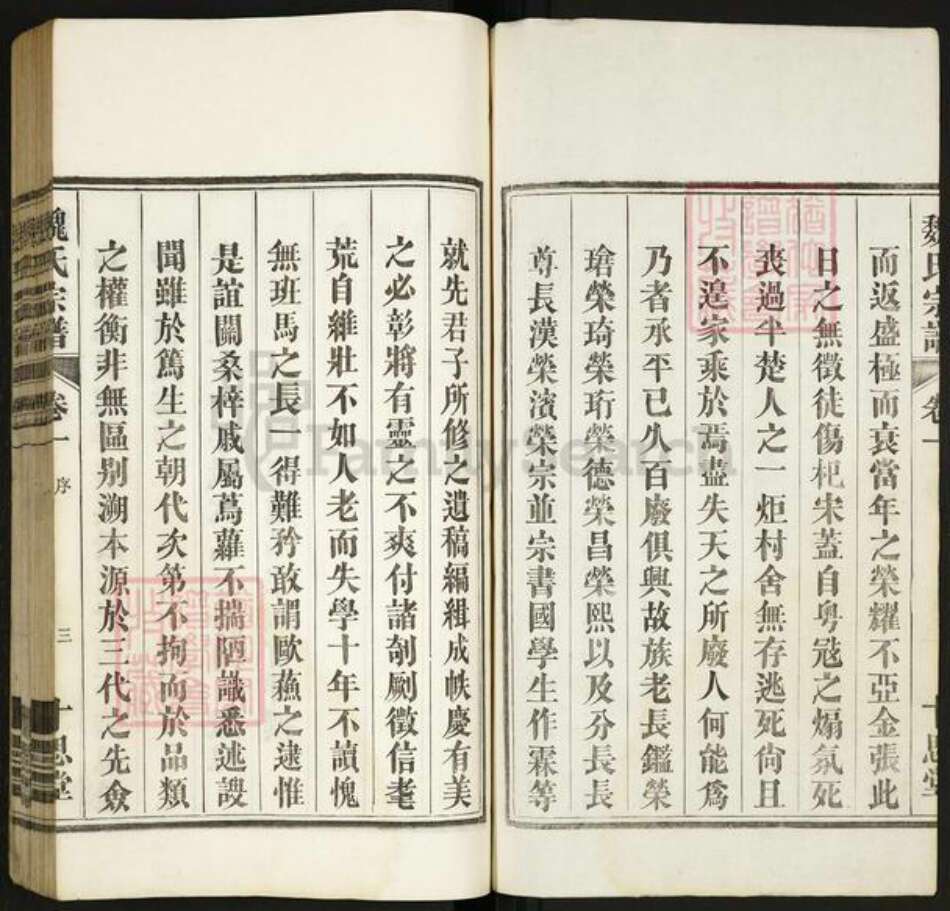 而返盛極而衰當年之榮耀不亞金張此
日之無徵徒傷杞宋蓋自粵寇之煽氛死
喪過半楚人之一炬村舍無存逃死尙且
不遑家乘於焉盡失天之所廢人何能爲
乃者承平已久百廢俱興故族老長鑑榮
瑲榮琦榮珩榮德榮昌榮熙以及分長長
尊長漢榮濱榮宗並宗書國學生作霖等
魏氏宗譜 卷一 序 三 十思堂
就先君子所修之遺稿編緝成帙慶有美
之必彰將有靈之不爽付諸剞劂徵信耄
荒自維壯不如人老而失學十年不讀愧
無班馬之長一得難矜敢謂歐蘓之逮惟
是誼關桑梓戚屬蔦蘿不揣陋識悉述謏
聞雖於篤生之朝代次第不拘而於品類
之權衡非無區别溯本源於三代之先僉
FamilySearch